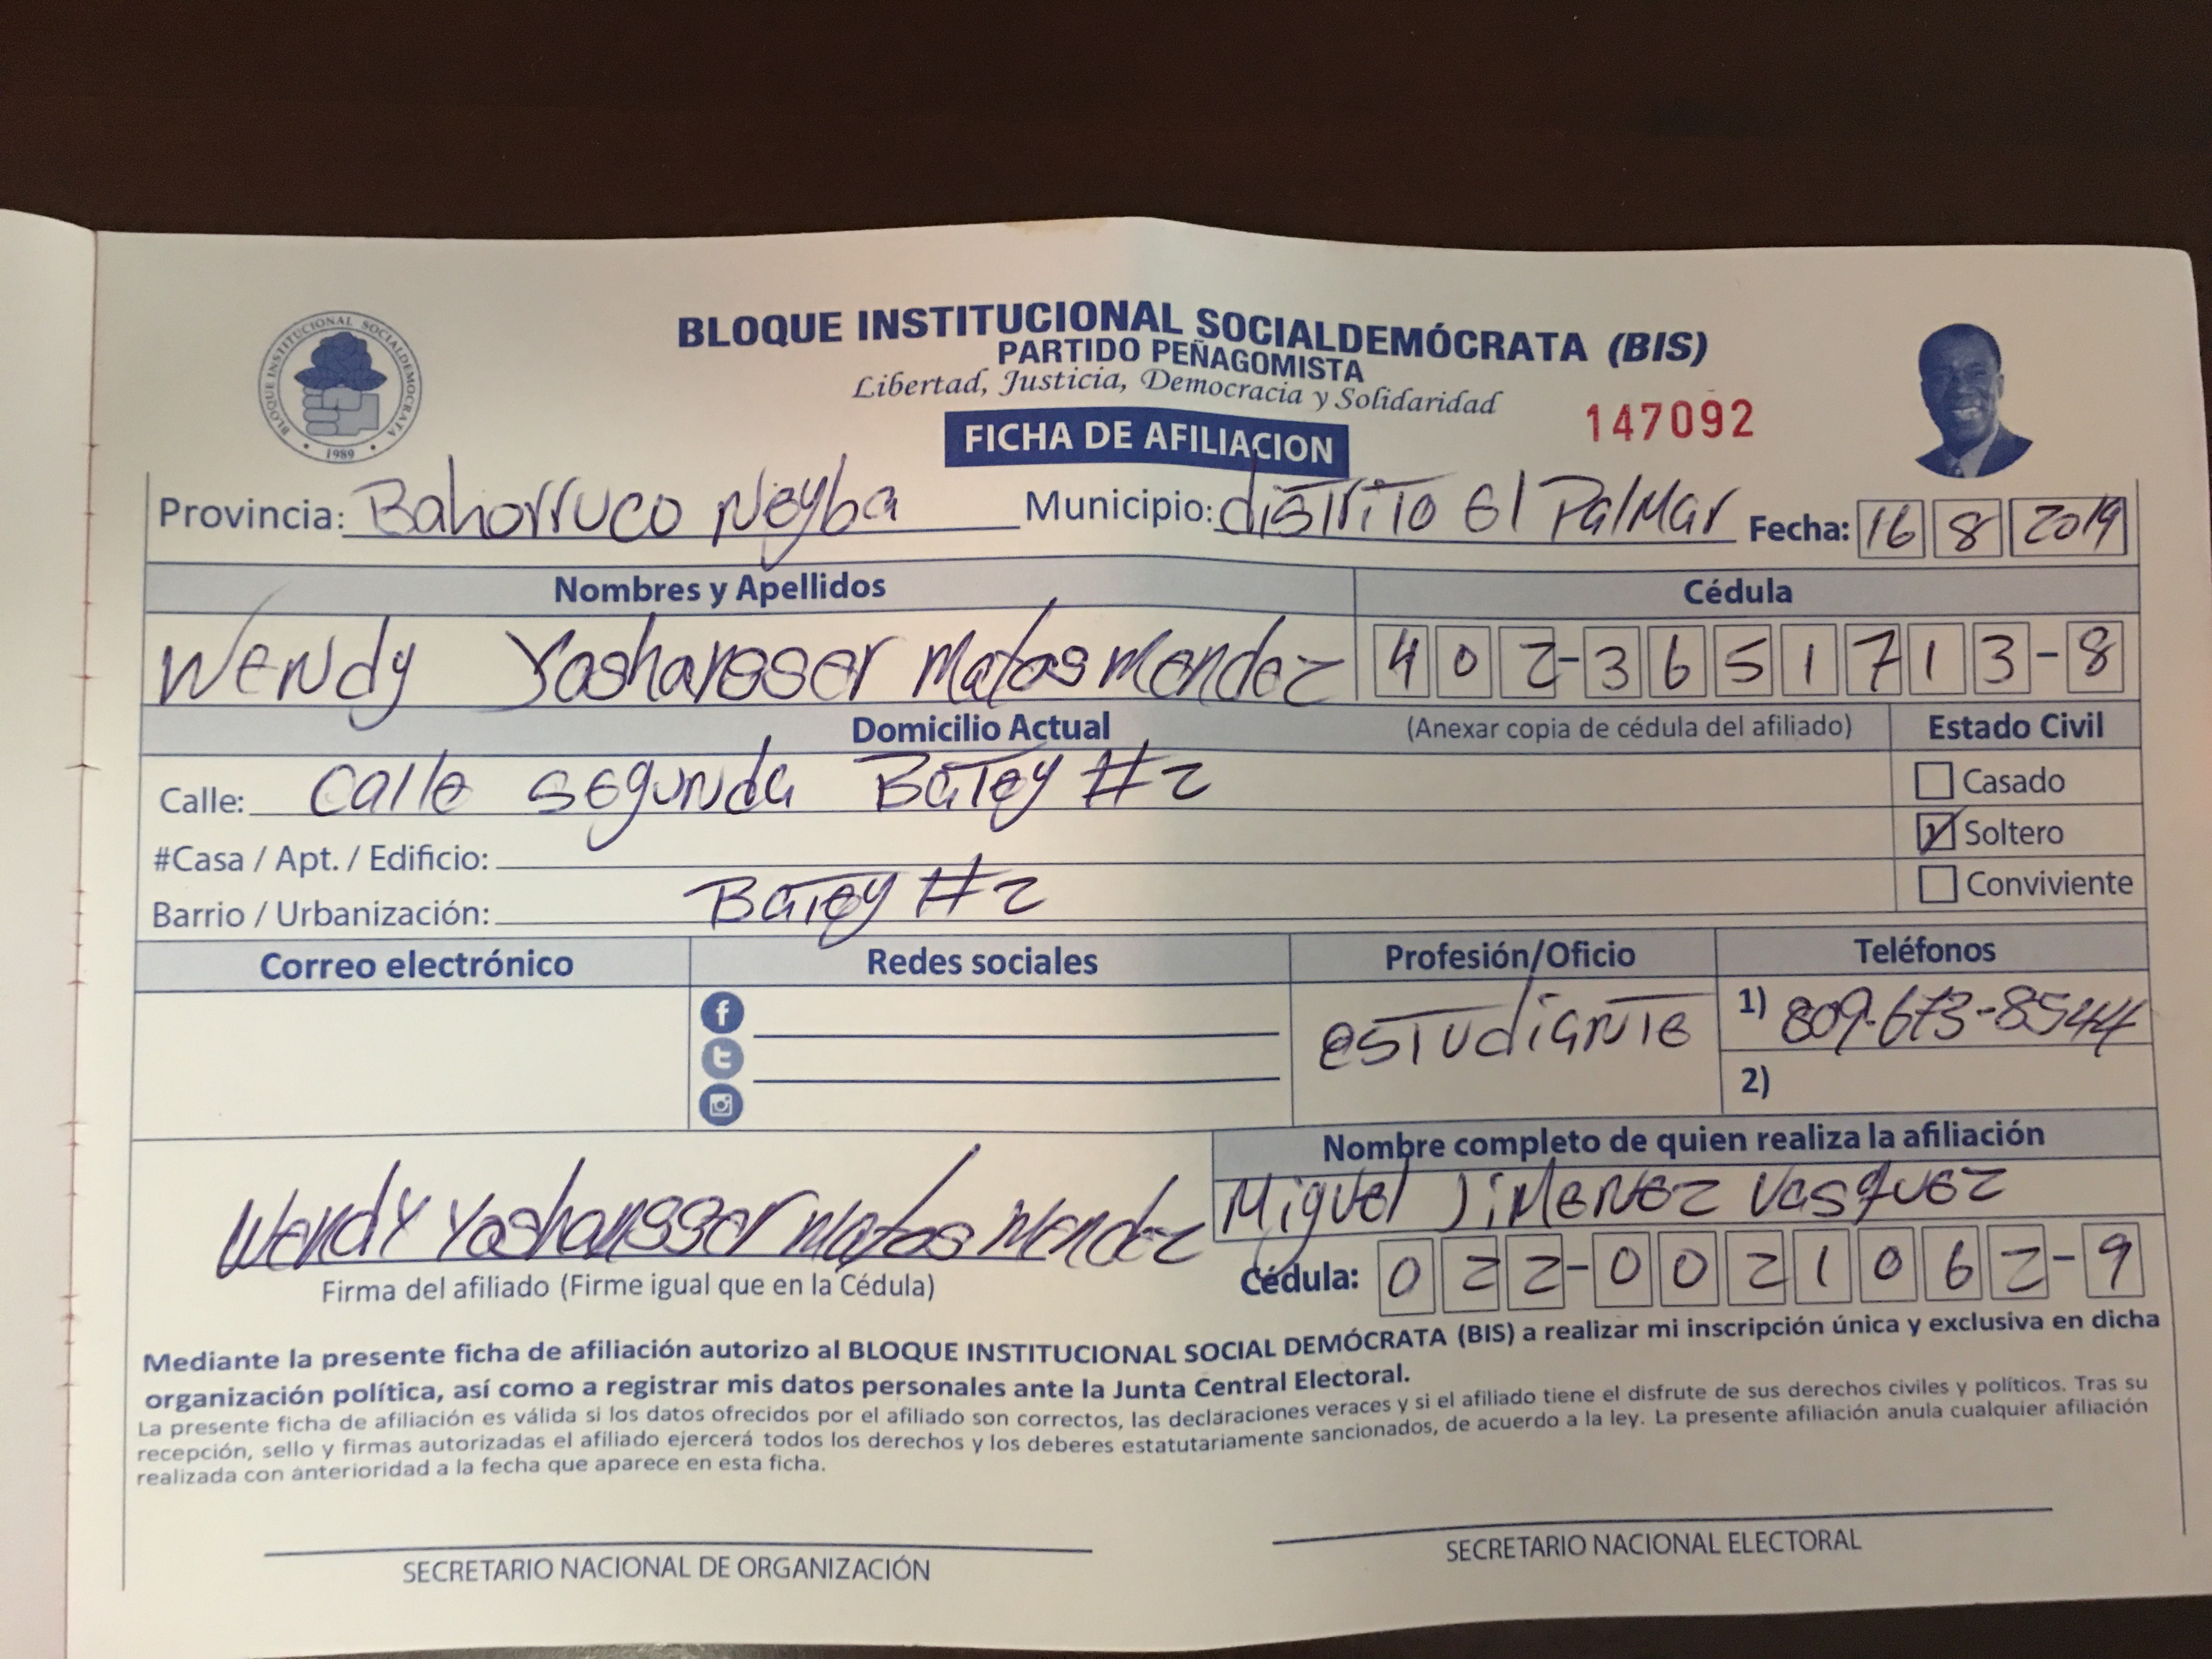 BLOQUE INSTITUCIONAL SOCIALDEMOCRATA
1989
BLOQUE INSTITUCIONAL SOCIALDEMÓCRATA (BIS)
PARTIDO PEÑAGOMISTA
Libertad, Justicia, Democracia y Solidaridad
147092
FICHA DE AFILIACION
Provincia: Bahorruco Neyba Municipio: distrito El Palmar Fecha: 16 8 2019
Nombres y Apellidos Cédula
Wendy Yashansser Matos Mendez 402-3651713-8
Domicilio Actual (Anexar copia de cédula del afiliado) Estado Civil
Calle: calle segunda Batey #2 Casado
#Casa / Apt. / Edificio: Soltero
Barrio / Urbanización: Batey #2 Conviviente
Correo electrónico Redes sociales Profesión/Oficio Teléfonos
estudiante 1) 809-673-8544
2)
Nombre completo de quien realiza la afiliación
Miguel Jimenez Vasquez
Wendy Yashansser Matos Mendez
Firma del afiliado (Firme igual que en la Cédula) Cédula: 022-0021062-9
Mediante la presente ficha de afiliación autorizo al BLOQUE INSTITUCIONAL SOCIAL DEMÓCRATA (BIS) a realizar mi inscripción única y exclusiva en dicha
organización política, así como a registrar mis datos personales ante la Junta Central Electoral.
La presente ficha de afiliación es válida si los datos ofrecidos por el afiliado son correctos, las declaraciones veraces y si el afiliado tiene el disfrute de sus derechos civiles y políticos. Tras su
recepción, sello y firmas autorizadas el afiliado ejercerá todos los derechos y los deberes estatutariamente sancionados, de acuerdo a la ley. La presente afiliación anula cualquier afiliación
realizada con anterioridad a la fecha que aparece en esta ficha.
SECRETARIO NACIONAL DE ORGANIZACIÓN SECRETARIO NACIONAL ELECTORAL